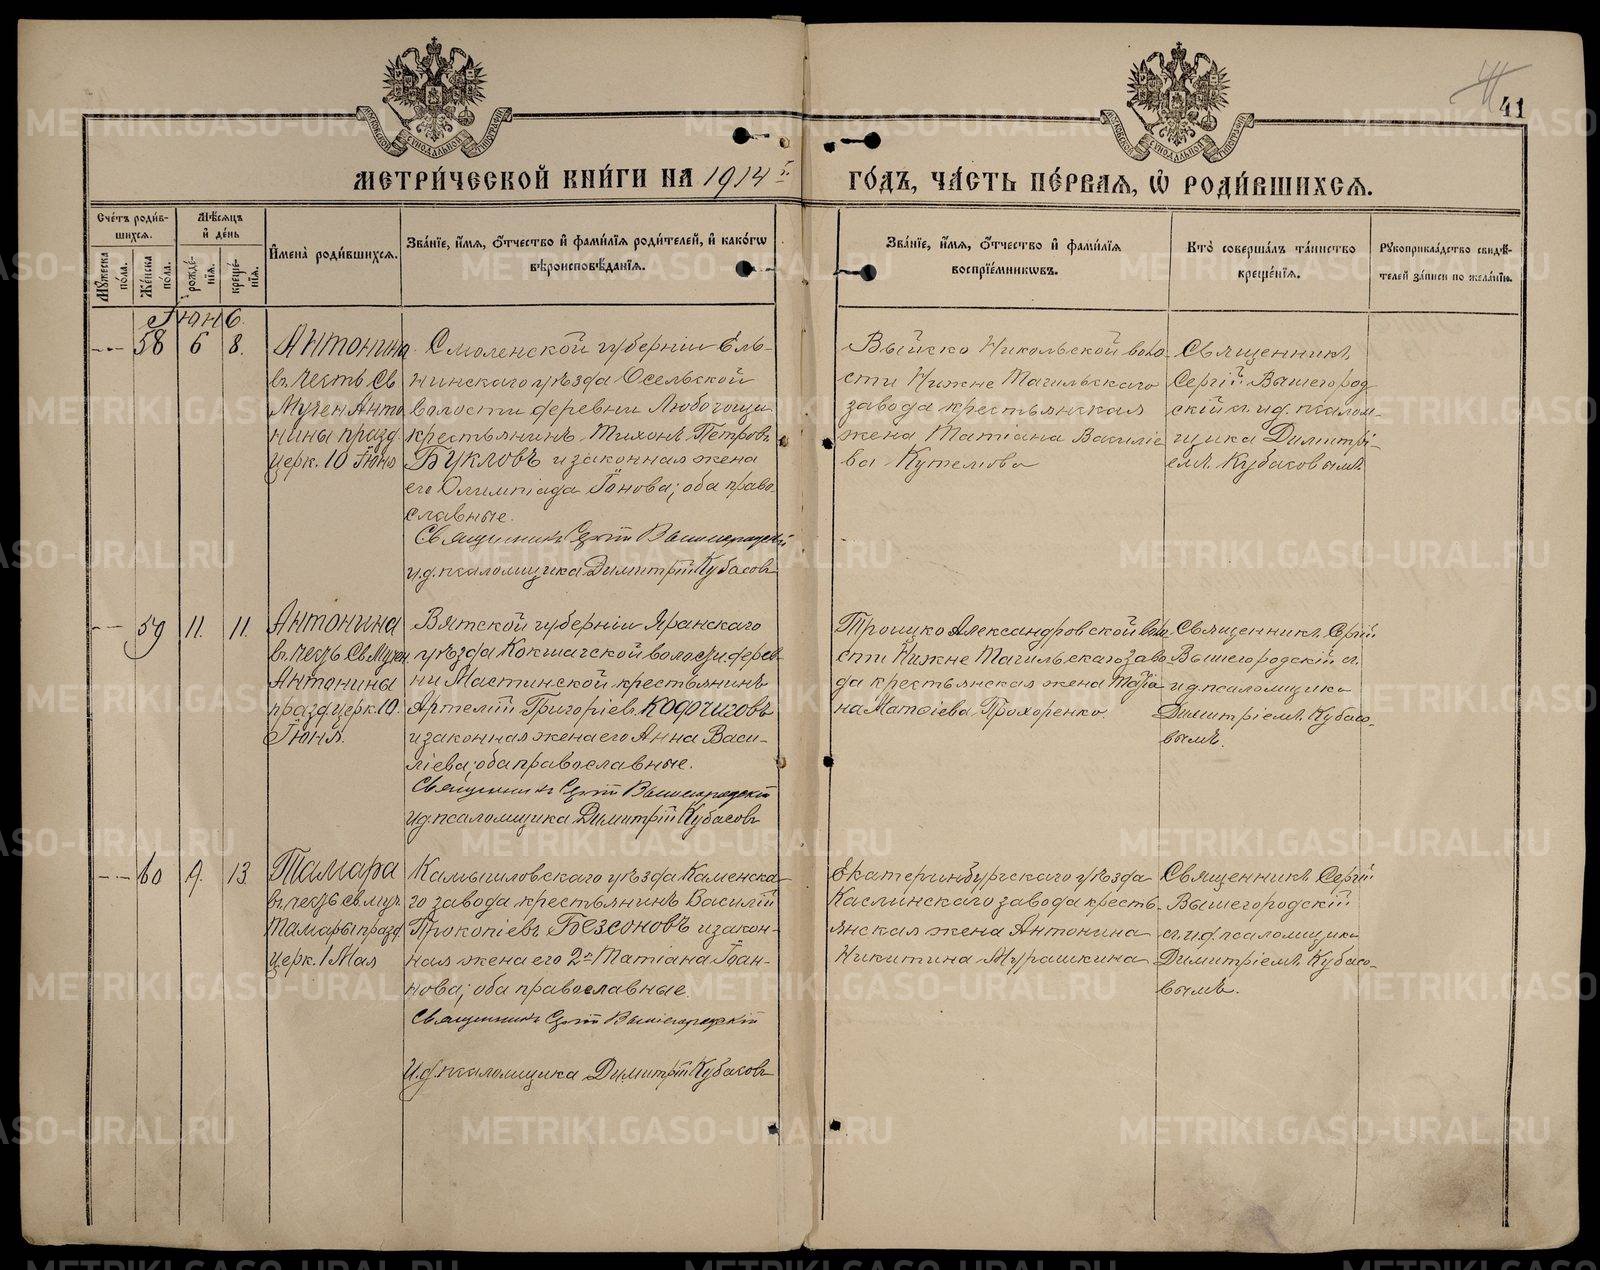 41
41
МЕТРИ́ЧЕСКОЙ КНИ́ГИ НА 1914 г.
ГО́ДЪ, ЧА́СТЬ ПЕ́РВАЯ, Ѽ РОДИ́ВШИХСѦ.
Сче́тъ роди́в-
шихсѧ.
Мꙋжеска по́ла.
Же́нска по́ла.
Мѣ́сѧцъ и҆ де́нь
рожде́нїѧ.
креще́нїѧ.
И҆мена̀ роди́вшихсѧ.
Зва́нїе, и҆́мѧ, ѻ҆́тчество и҆ фами́лїѧ роди́телей, и҆ како́гѡ
вѣроисповѣ́данїѧ.
Зва́нїе, и҆́мѧ, ѻ҆́тчество и҆ фами́лїѧ
воспрїе́мникѡвъ.
Кто̀ соверша́лъ та́инство
креще́нїѧ.
Рꙋкоприкла́дство свидѣ́-
телей за́писи по жела́нїю.
Іюнь
58 6 8.
Антонина
въ честь Св
Мучен Анто
нины празд
церк. 10 Іюня
Смоленской губерніи Ель-
нинскаго уѣзда Осельской
волости деревни Любогощи
крестьянинъ Тихонъ Петровъ
Букловъ и законная жена
его Олимпіада Іонова; оба право-
славные.
Священникъ Сергій Вышегородскій
и.д. псаломщика Димитрій Кубасовъ
Выйско Никольской воло-
сти Нижне Тагильскаго
завода крестьянская
жена Татіана Василіе
ва Кутемова
Священникъ
Сергій Вышегород
скій съ и.д. псалом-
щика Димитрі-
емъ Кубасовымъ
59 11. 11.
Антонина
въ честь Св Мучен
Антонины
празд церк. 10.
Іюня.
Вятской губерніи Яранскаго
уѣзда Кокшагской волости, дерев-
ни Мастинской крестьянинъ
Артемій Григоріевъ Кодочиговъ
и законная жена его Анна Васи-
ліева; оба православные.
Священникъ Сергій Вышегородскій
и.д. псаломщика Димитрій Кубасовъ
Троицко Александровской воло
сти Нижне Тагильскаго заво
да крестьянская жена Татіа
на Матѳіева Прохоренко.
Священникъ Сергій
Вышегородскій съ
и.д. псаломщика
Димитріемъ Кубасо-
вымъ.
60 9. 13.
Тамара
въ честь св. муч.
Тамары празд
церк. 1 Мая
Камышловскаго уѣзда Каменска-
го завода крестьянинъ Василій
Прокопіевъ Безсоновъ и закон-
ная жена его 2я Татіана Іоан-
нова; оба православные.
Священникъ Сергій Вышегородскій
И.д. псаломщика Димитрій Кубасовъ
Екатеринбургскаго уѣзда
Каслинскаго завода кресть-
янская жена Антонина
Никитина Мурашкина
Священникъ Сергій
Вышегородскій
съ и.д. псаломщика
Димитріемъ Кубасо-
вымъ.